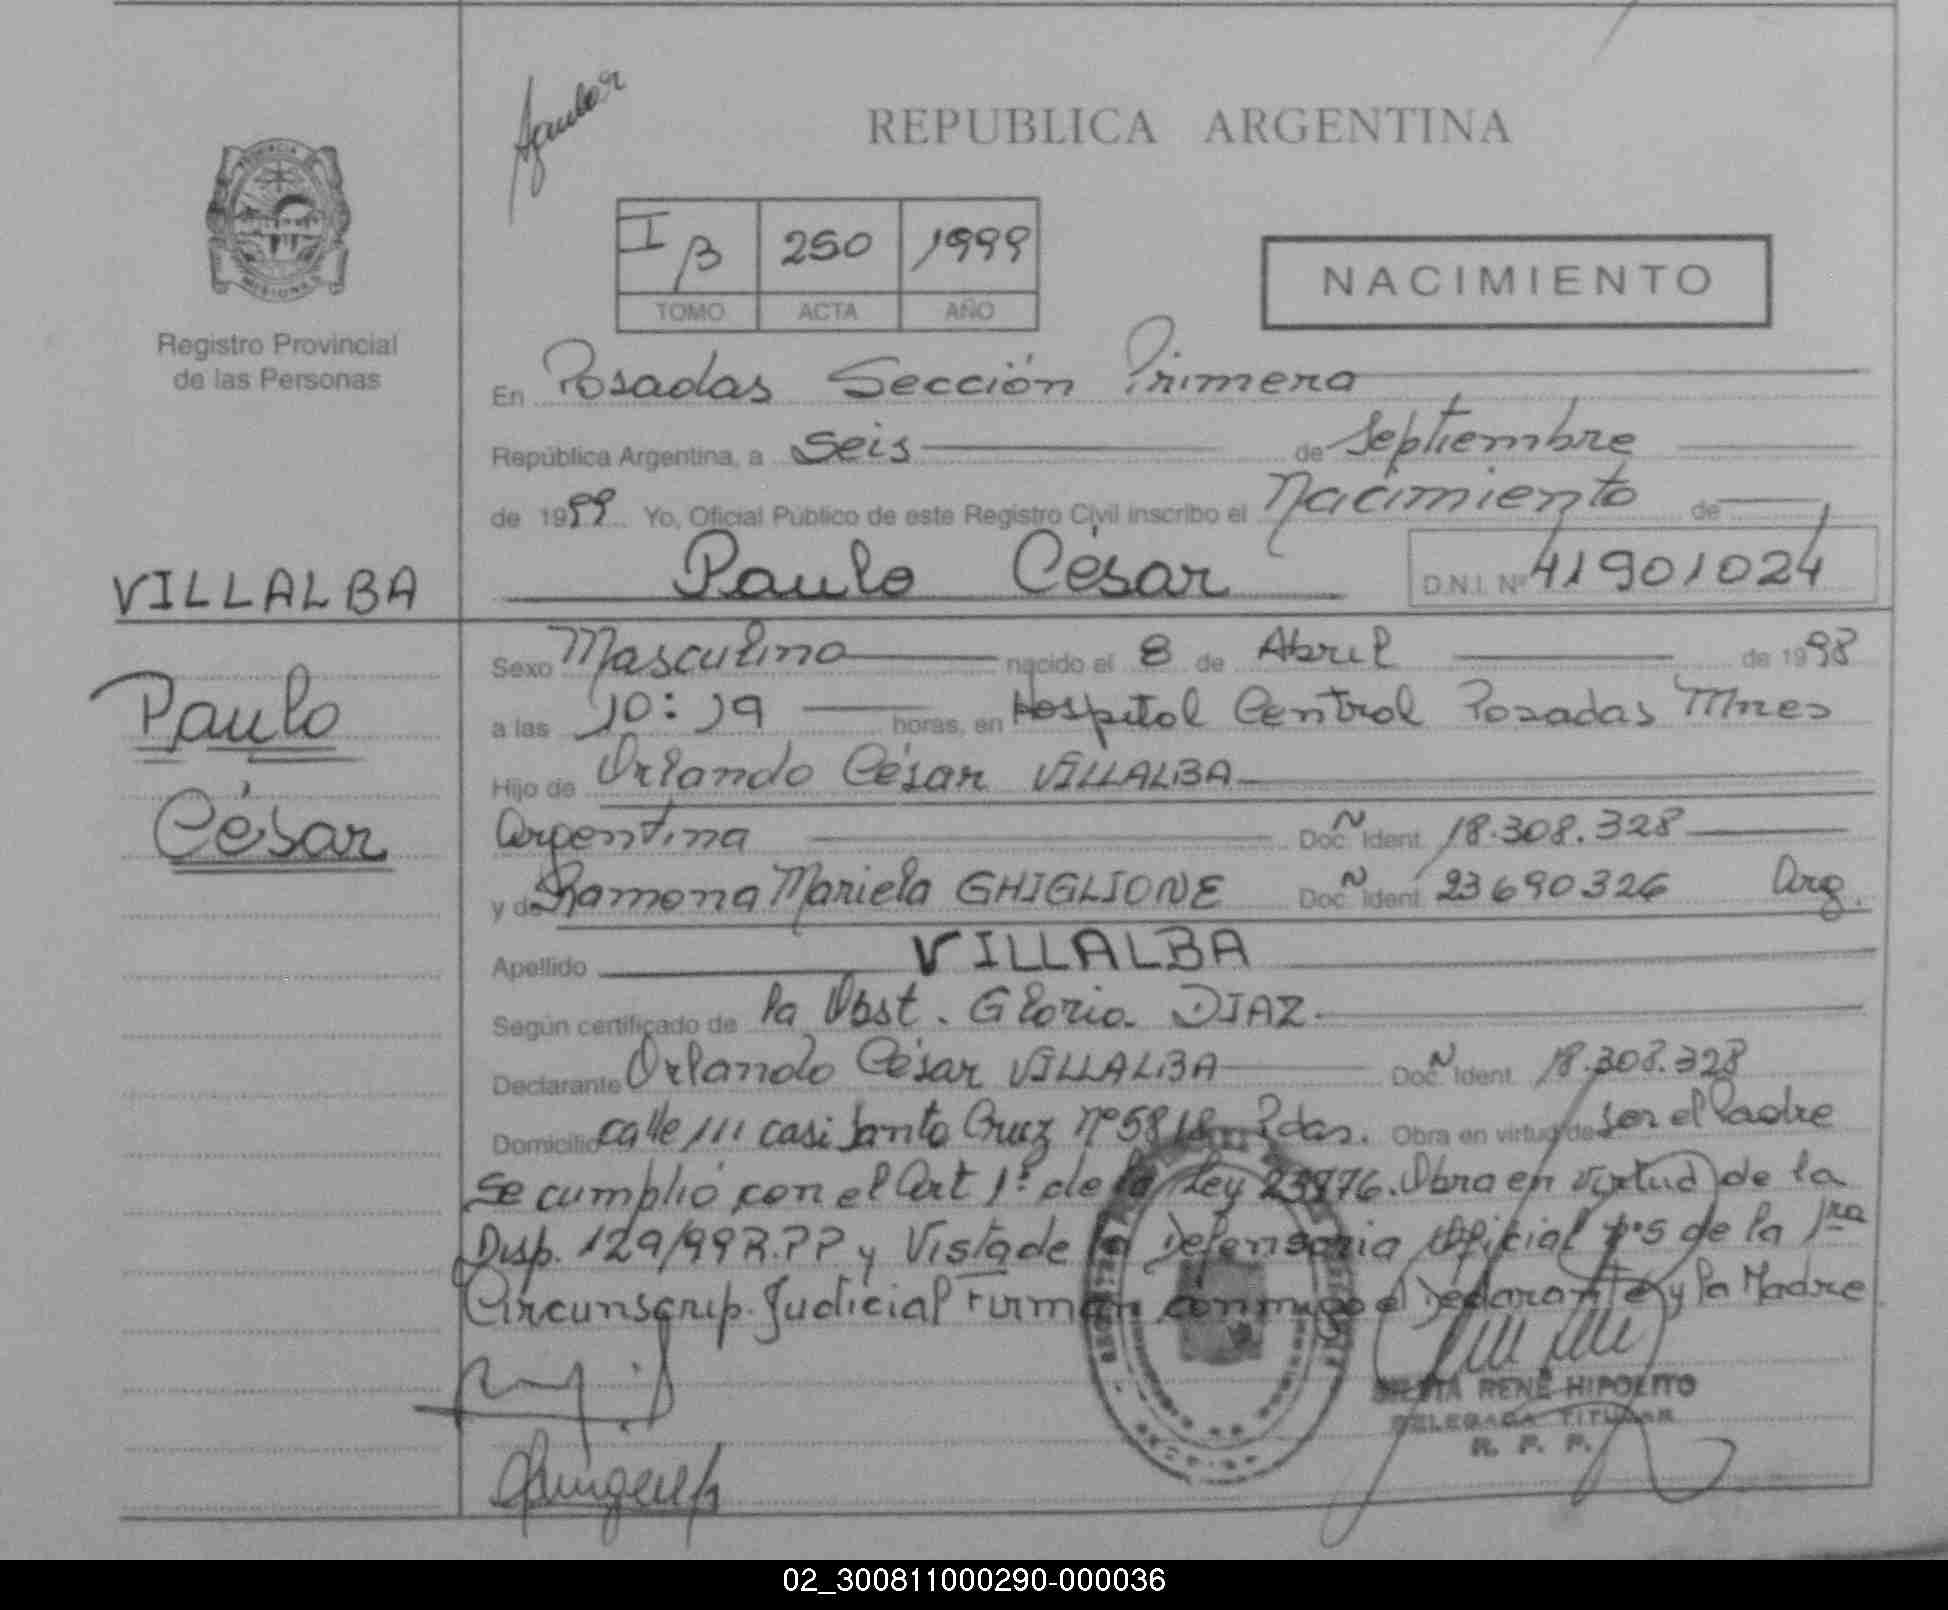 Aguilar
REPUBLICA ARGENTINA
PROVINCIA
MISIONES
Registro Provincial
de las Personas
I B 250 1999
TOMO ACTA AÑO
NACIMIENTO
En Posadas Sección Primera
República Argentina, a Seis de Septiembre
de 1999 Yo, Oficial Público de este Registro Civil inscribo el Nacimiento de
VILLALBA
Paulo César D.N.I. Nº 41901024
Paulo
César
Sexo Masculino nacido el 8 de Abril de 1998
a las 10:19 horas, en Hospital Central Posadas Mnes
Hijo de Orlando César VILLALBA
Argentina Doc. Ident. 18.308.328
y de Ramona Mariela GHIGLIONE Doc. Ident. 23690326 Arg.
Apellido VILLALBA
Según certificado de la Obst. Gloria DIAZ
Declarante Orlando César VILLALBA Doc. Ident. 18.308.328
Domicilio calle 111 casi Santa Cruz nº 5818 Pdas. Obra en virtud de ser el Padre
Se cumplió con el Art 1º de la Ley 23776. Obra en virtud de la
Disp. 129/99 R.P.P y Vista de la Defensoria Oficial Nº5 de la 1ra
Circunscrip. Judicial Firman conmigo el Declarante y la Madre
RENE HIPOLITO
DELEGADA TITULAR
R. P. P.
02_300811000290-000036